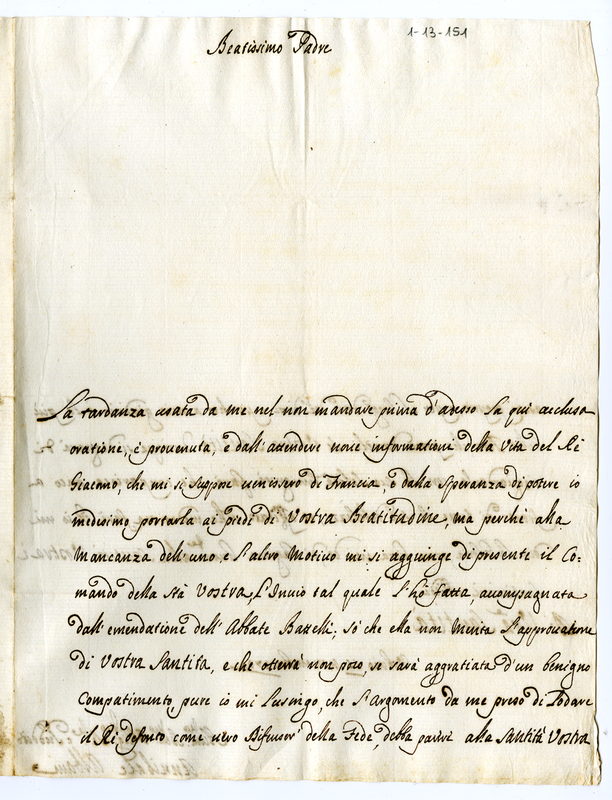 1-13-151
Beatissimo Padre
La tardanza usata da me nel non mandare prima d'adesso la qui acclusa
oratione, è provenuta, e dall'attendere nove informationi della Vita del Rè
Giacomo, che mi si suppose venissero di Francia, e dalla speranza di potere io
medesimo portarla ai piedi di Vostra Beatitudine, ma perchè alla
Mancanza dell'uno, e l'altro Motivo mi si aggiunge di presente il Co=
mando della Stà Vostra, l'Invio tal quale l'hò fatta, accompagnata
dall'emendatione dell'Abbate Battelli; sò che ella non Merita l'approvatione
di Vostra Santità, e che otterrà non poco, se sarà aggratiata d'un benigno
Compatimento, pure io mi Lusingo, che l'Argomento da me preso di Lodare
il Rè defonto come vero Difensor' della Fede, debba parere alla Santità Vostra